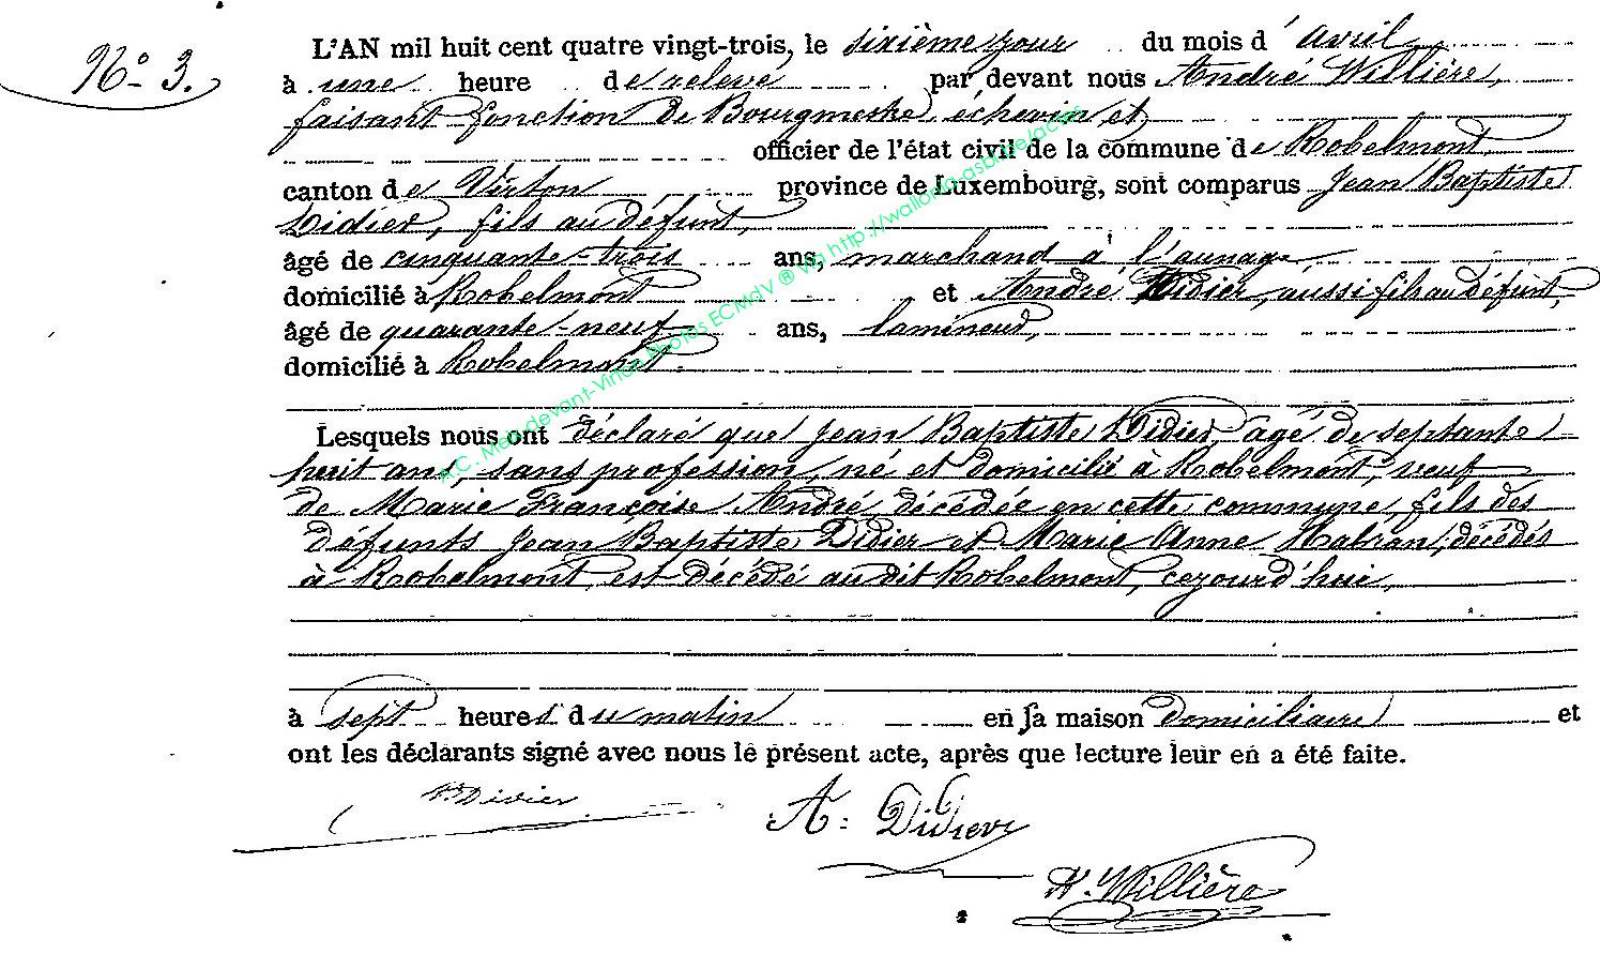 N° 3.
L'AN mil huit cent quatre vingt-trois, le sixième jour du mois d'avril
à une heure de relevé par devant nous André Willière,
faisant fonction de Bourgmestre, échevin et
officier de l'état civil de la commune de Robelmont,
canton de Virton province de Luxembourg, sont comparus Jean Baptiste
Didier, fils au défunt,
âgé de cinquante-trois ans, marchand à l'aunage,
domicilié à Robelmont et André Didier, aussi fils au défunt,
âgé de quarante-neuf ans, lamineur,
domicilié à Robelmont.
Lesquels nous ont déclaré que Jean Baptiste Didier, âgé de septante
huit ans, sans profession, né et domicilié à Robelmont, veuf
de Marie Françoise André, décédée en cette commune, fils des
défunts Jean Baptiste Didier et Marie Anne Habran, décédés
à Robelmont, est décédé au dit Robelmont, cejourd'hui,
à sept heures du matin en sa maison domiciliaire et
ont les déclarants signé avec nous le présent acte, après que lecture leur en a été faite.
Didier
A: Didier
A. Willière